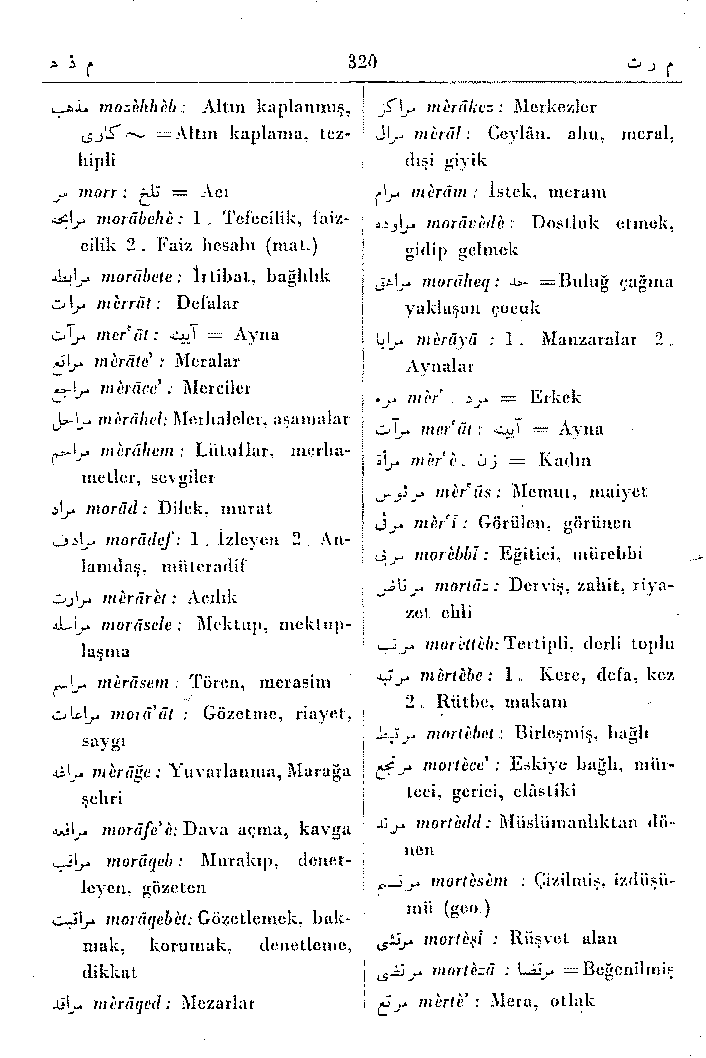 م ذ د
320
م ر ت
مذهب mozèhhèb: Altın kaplanmış,
~ کاری =Altın kaplama, tez-
hipli
مر morr: تلخ = Acı
مرابحه morābehè: 1. Tefecilik, faiz-
cilik 2. Faiz hesabı (mat.)
مرابطه morābete: İrtibat, bağlılık
مرات mèrrāt: Defalar
مرآت mer'āt: آیینه = Ayna
مراتع mèrāte': Meralar
مراجع mèrāce': Merciler
مراحل mèrāhel: Merhaleler, aşamalar
مراحم mèrāhem: Lütuflar, merha-
metler, sevgiler
مراد morād: Dilek, murat
مرادف morādef: 1. İzleyen 2. An-
lamdaş, müteradif
مرارت mèrārèt: Acılık
مراسله morāsele: Mektup, mektup-
laşma
مراسم mèrāsem: Tören, merasim
مراعات morā'āt : Gözetme, riayet,
saygı
مراغه mèrāğe: Yuvarlanma, Marağa
şehri
مرافعه morāfe'è: Dava açma, kavga
مراقب morāqeb: Murakıp, denet-
leyen, gözeten
مراقبت morāqebèt: Gözetlemek, bak-
mak, korumak, denetleme,
dikkat
مراقد mèrāqed: Mezarlar
مراکز mèrākez: Merkezler
مرال mèrāl: Ceylân, ahu, meral,
dişi giyik
مرام mèrām: İstek, meram
مراوده morāvèdè: Dostluk etmek,
gidip gelmek
مراهق morāheq: =Buluğ çağına
yaklaşan çocuk
مرایا mèrāyā : 1. Manzaralar 2.
Aynalar
مرء mèr'. مرد = Erkek
مرآت mer'āt: آیینه = Ayna
مرأة mèr'è. زن = Kadın
مرئوس mèr'ūs: Memur, maiyet
مرئی mèr'ī: Görülen, görünen
مربی morèbbī: Eğitici, mürebbi
مرتاض mortāz: Derviş, zahit, riya-
zet ehli
مرتب morèttèb: Tertipli, derli toplu
مرتبه mèrtèbe: 1. Kere, defa, kez
2. Rütbe, makam
مرتبط mortèbet: Birleşmiş, bağlı
مرتجع mortèce' : Eskiye bağlı, mür-
teci, gerici, elâstiki
مرتد mortèdd: Müslümanlıktan dö-
nen
مرتسم mortèsèm : Çizilmiş, izdüşü-
mü (geo.)
مرتشی mortèşī : Rüşvet alan
مرتضی mortèzā : مرتضا =Beğenilmiş
مرتع mèrtè' : Mera, otlak